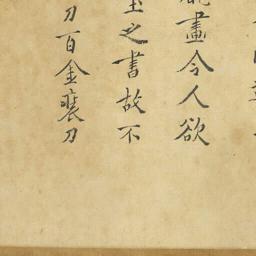 畫令人欲
之書故不
刀百金裹刀